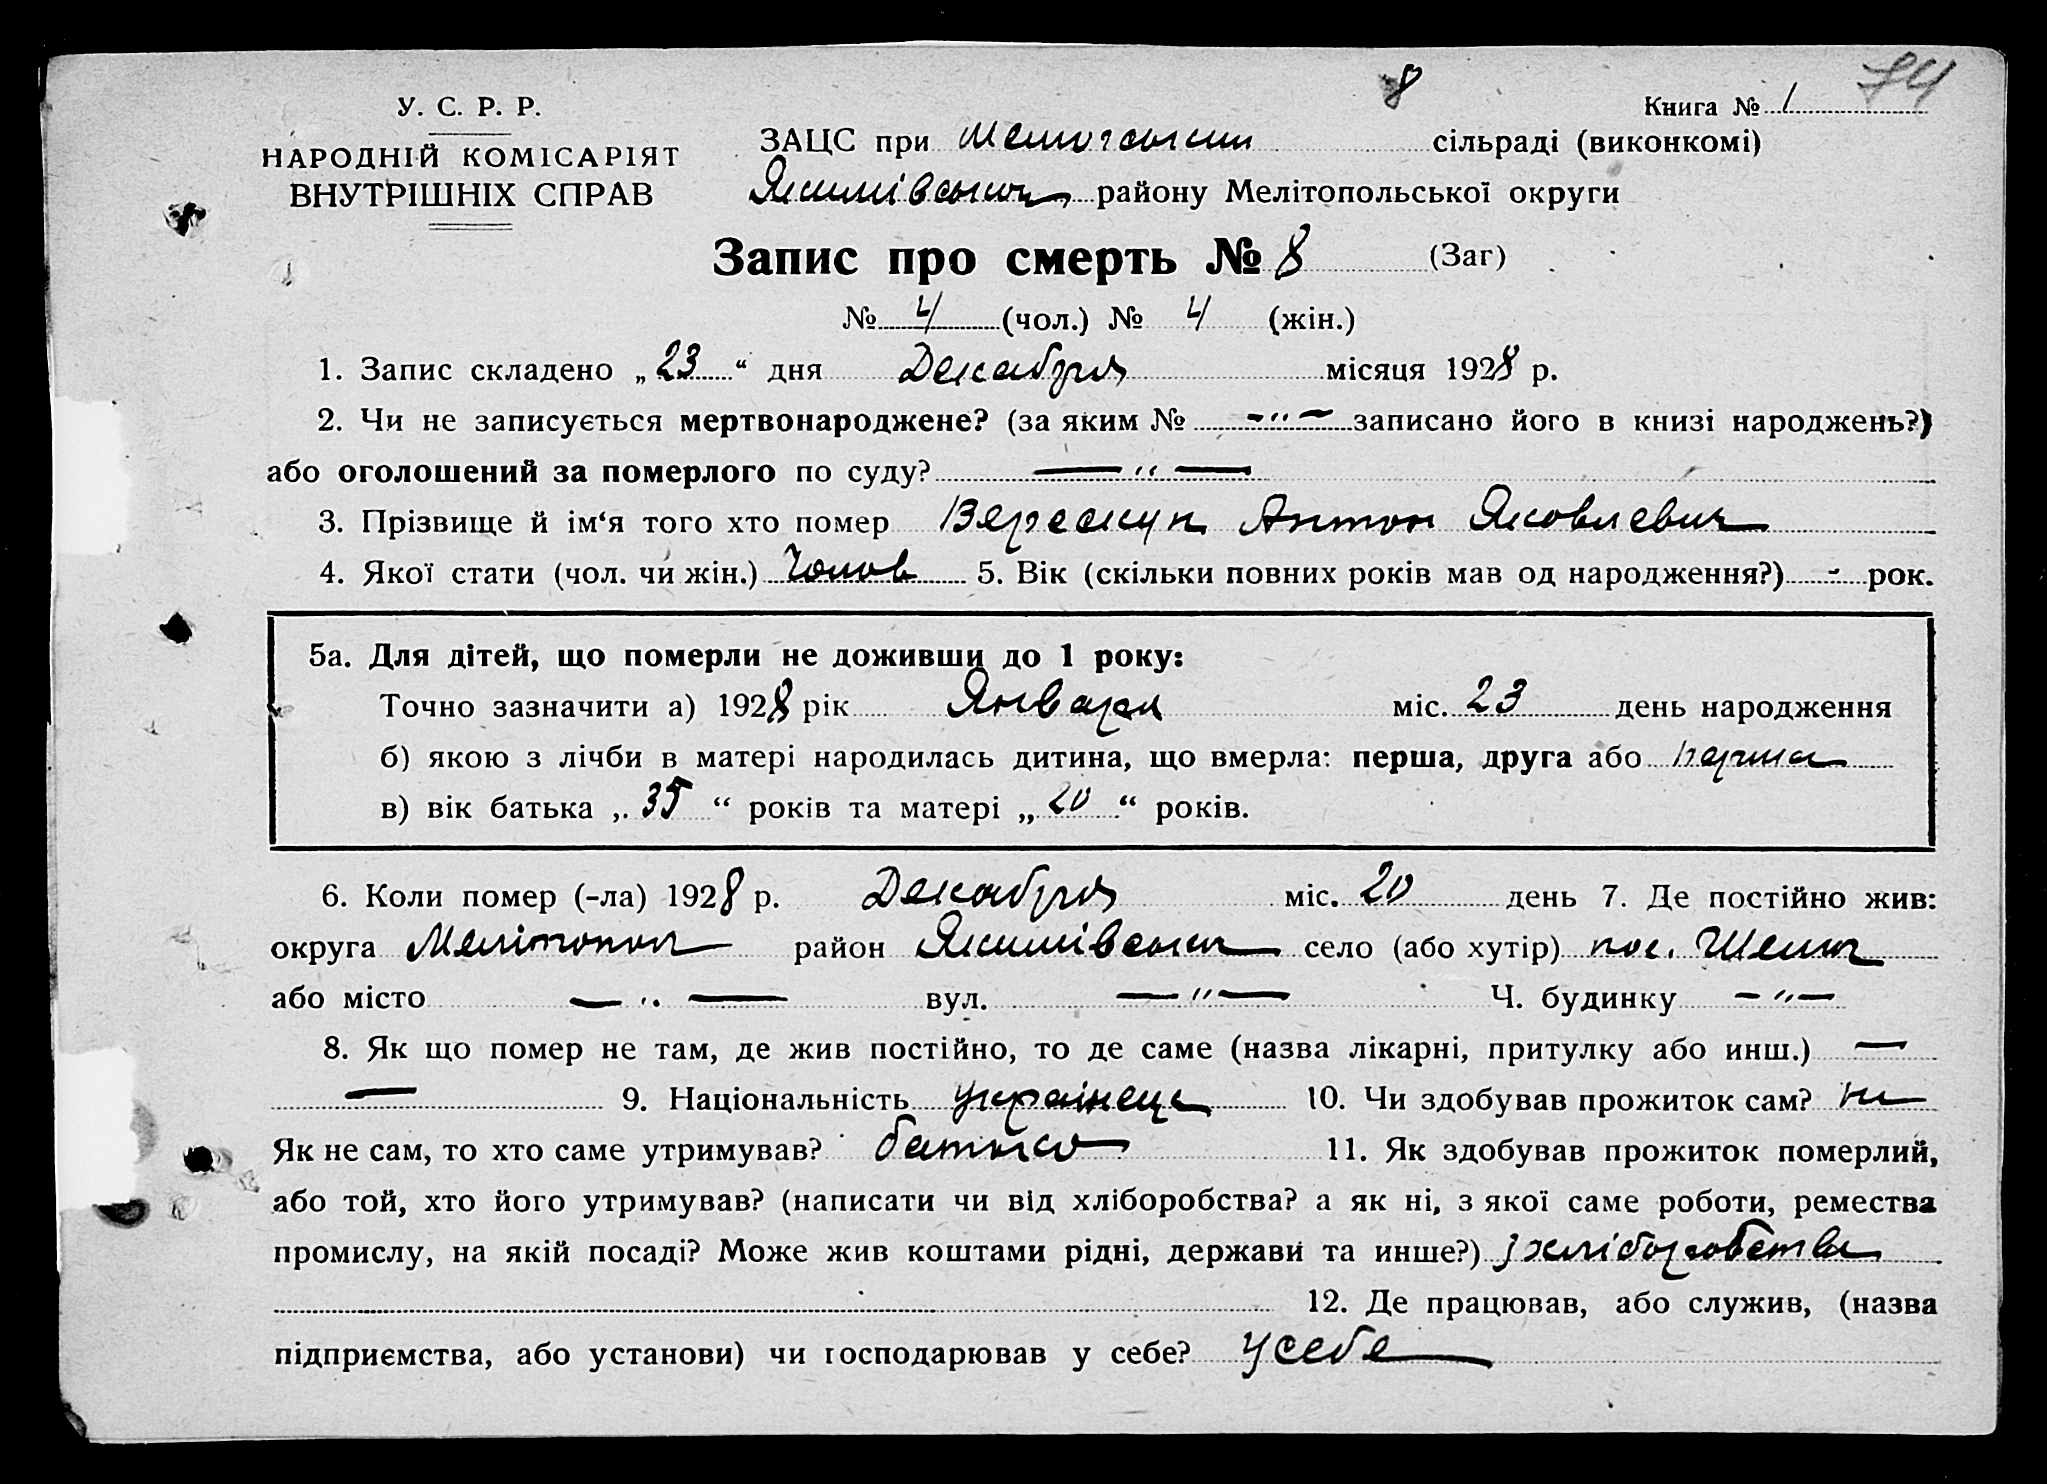 8
74
У. С. Р. Р.
Книга № 1
НАРОДНІЙ КОМІСАРІЯТ
ВНУТРІШНІХ СПРАВ
ЗАЦС при сільраді (виконкомі)
Якимівськ района Мелітопольської округи
Запис про смерть № 8 (Заг)
№ 4 (чол.) № 4 (жін.)
1. Запис складено „23“ дня Декабря місяця 1928 р.
2. Чи не записується мертвонароджене? (за яким № -"- записано його в книзі народжень?)
або оголошений за померлого по суду? —"—
3. Прізвище й ім‘я того хто помер Антон Яковлевич
4. Якої стати (чол. чи жін.) Чолов 5. Вік (скільки повних років мав од народження?) - рок.
5а. Для дітей, що померли не доживши до 1 року:
Точно зазначити а) 1928 рік Января міс. 23 день народження
б) якою з лічби в матері народилась дитина, що вмерла: перша, друга або перша
в) вік батька „35“ років та матері „20“ років.
6. Коли помер (-ла) 1928 р. Декабря міс. 20 день 7. Де постійно жив:
округа Мелітопол район Якимівськ село (або хутір) пос.
або місто —"— вул. —"— Ч. будинку -"-
8. Як що помер не там, де жив постійно, то де саме (назва лікарні, притулку або инш.) —
— 9. Національність українець 10. Чи здобував прожиток сам? ни
Як не сам, то хто саме утримував? батько 11. Як здобував прожиток померлий,
або той, хто його утримував? (написати чи від хліборобства? а як ні, з якої саме роботи, ремества
промислу, на якій посаді? Може жив коштами рідні, держави та инше?) з хліборобства
12. Де працював, або служив, (назва
підприємства, або установи) чи господарював у себе? у себе